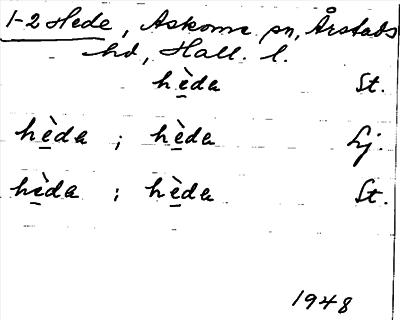 1-2 Hede, Askome sn, Årstads
hd, Hall. l.
hè̱da St.
hè̱da ; hè̱da Lj.
hè̱da ; hè̱da St.
1948